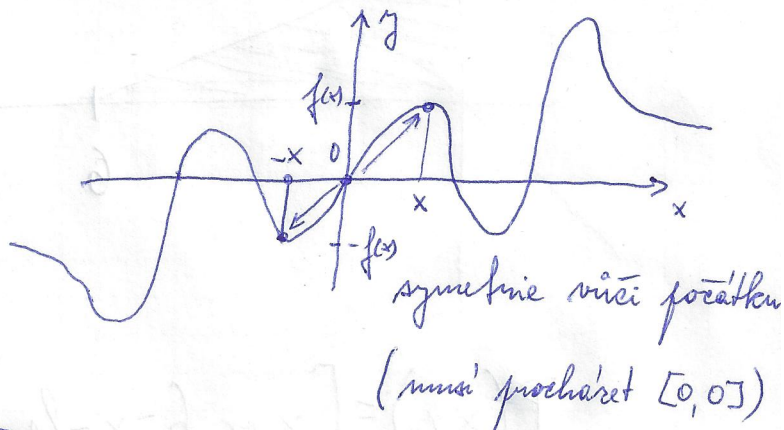 y
f(x)
-x 0
x x
-f(x)
symetrie vůči počátku
(musí procházet [0,0])